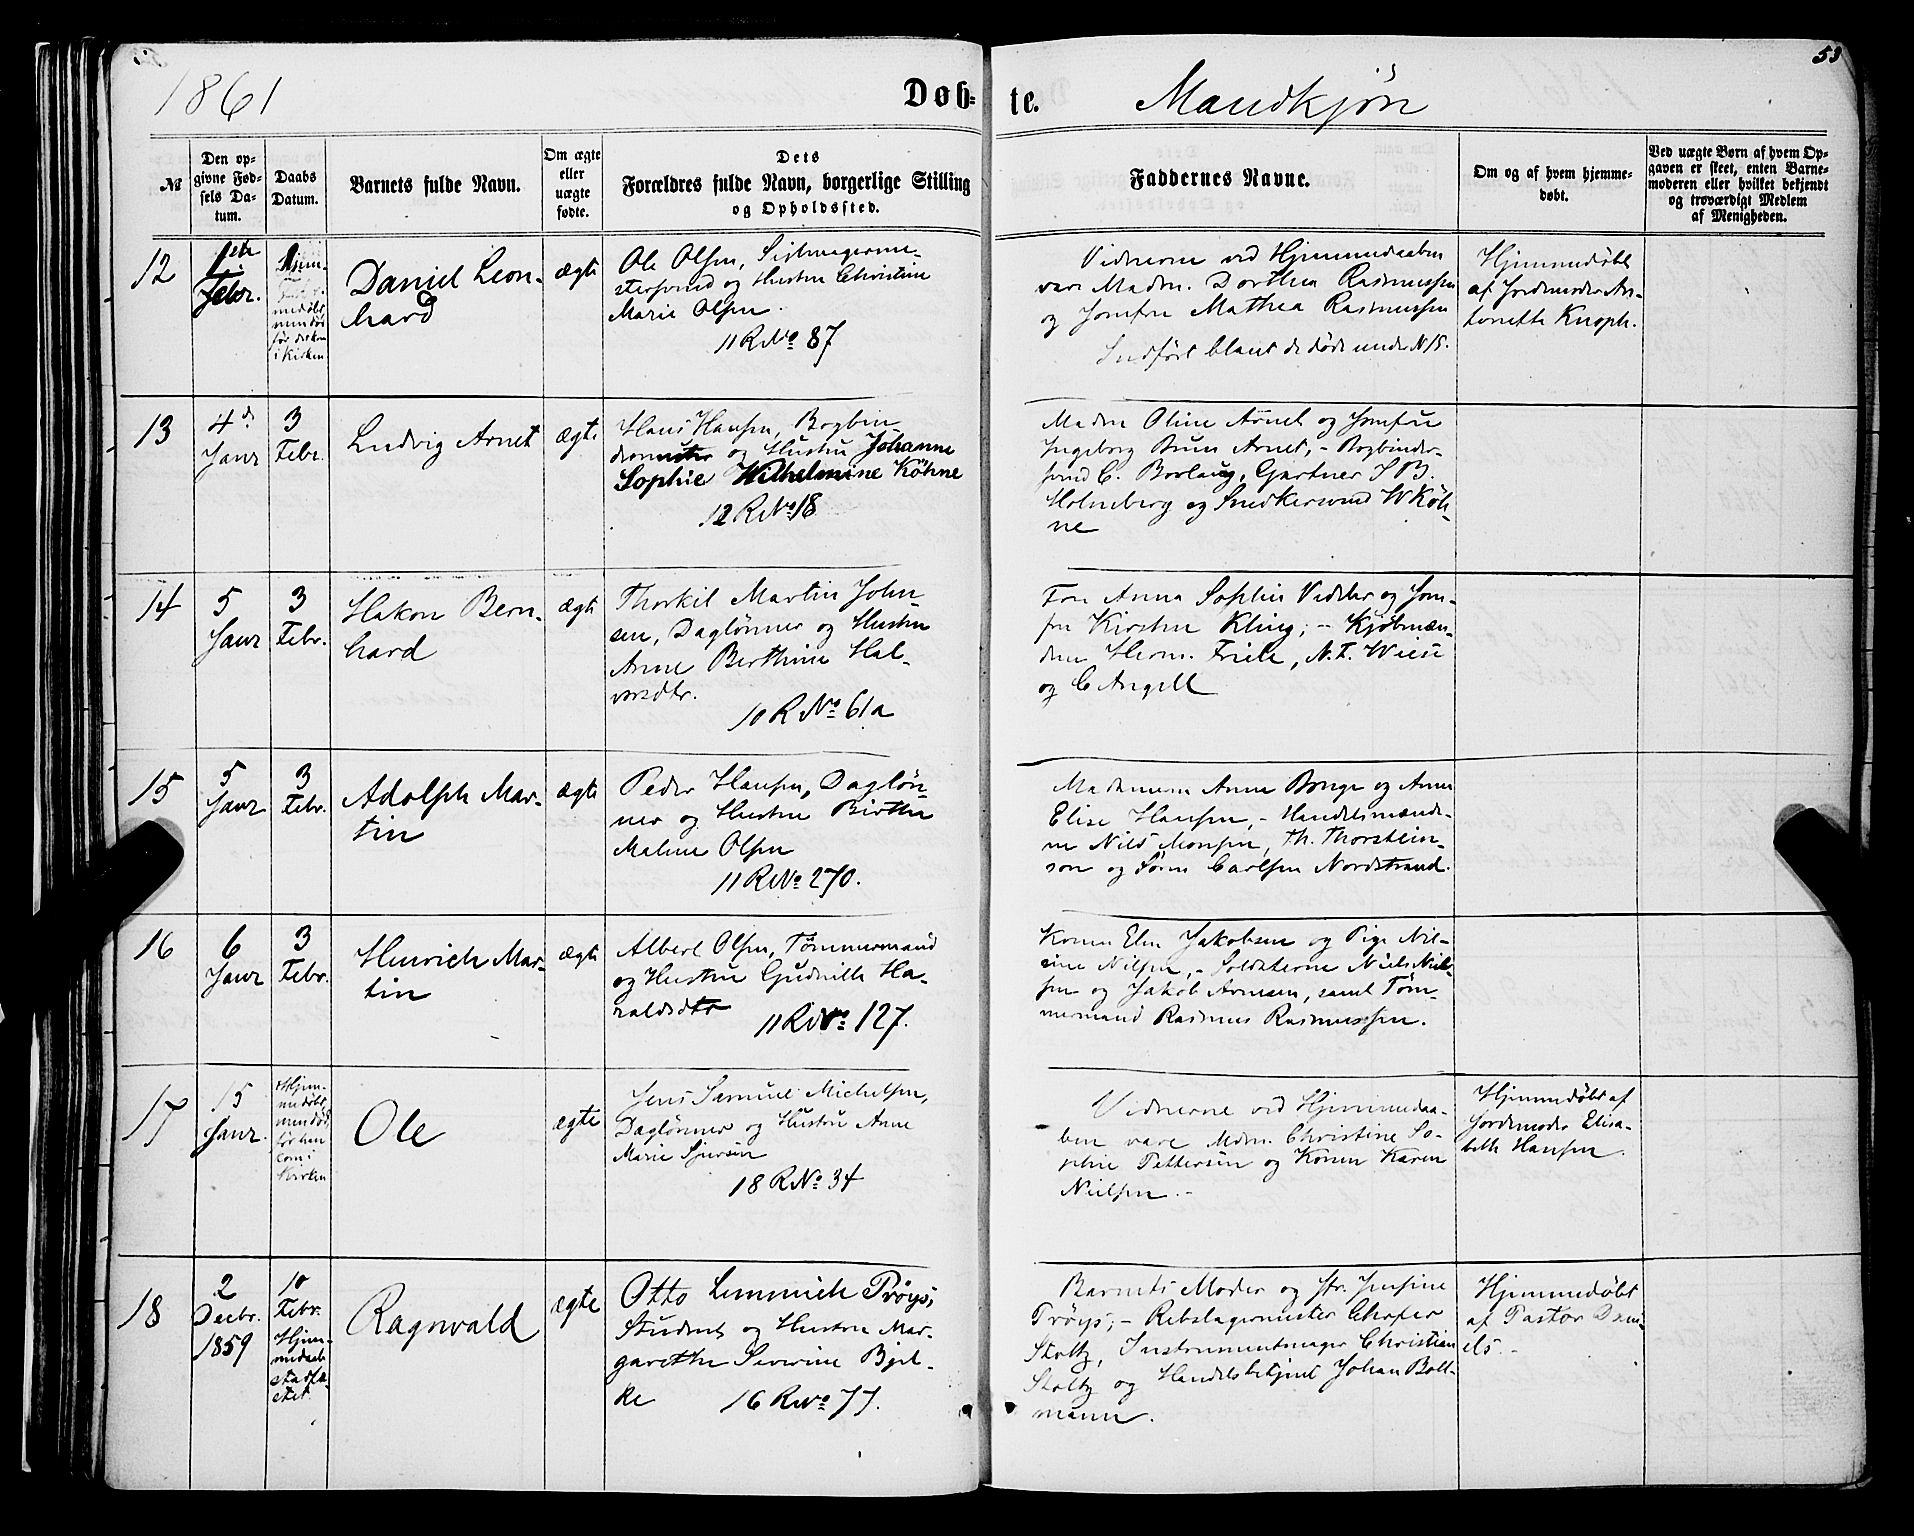 53
1861
Døb-
te.
Mandkjøn
№
Den op-
givne Fød-
sels Da-
tum.
Daabs
Datum.
Barnets fulde Navn.
Om ægte
eller
uægte
fødte.
Dets
Forældres fulde Navn, borgerlige Stilling
og Opholdssted.
Faddernes Navne.
Om og af hvem hjemme-
døbt.
Ved uægte Børn af hvem Op-
gaven er skeet, enten Barne-
moderen eller hvilket bekjendt
og troværdigt Medlem
af Menigheden.
12
Febr.
Hjem-
medøbt,
men død
før det kom
i Kirken
Daniel Leon-
hard
ægte
Ole Olsen,
og Hustru Christine
Marie Olsen.
11 R No 87
Vidnerne ved Hjemmedaaben
vare Madm. Dorthea Rasmussen
og Jomfru Mathea Rasmussen
Indført blant de døde under N 15.
Hjemmedøbt
af Jordmoder An-
tonette Knoph.
13
4de
Janr
3
Febr.
Ludvig Arnet
ægte
Hans Hansen, Bogbin-
dermester og Hustru Johanne
Sophie Wilhelmine Köhne
12 R No 18
Madm Oline Arnet og Jomfru
Ingeborg Bruun Arnet, - Bogbinder-
svend C. Borlaug, Gartner J B.
Holmeberg og Snedkersvend W Köh-
ne
14
5
Janr
3
Febr.
Hakon Bern-
hard
ægte
Thorkil Martin John-
sen, Daglønner og Hustru
Anne Berthine Hal-
vorsdtr.
10 R No 61a
Fru Anna Sophie Vedeler og Jom-
fru Kirsten Kling; - Kjøbmæn-
dene Herm. Friele, N. F. Wiese
og C Angell
15
5
Janr
3
Febr.
Adolph Mar-
tin
ægte
Peder Hansen, Dagløn-
ner og Hustru Birthe
Malene Olsen
11 R No 270.
Madamerne Anne Bonge og Anne
Elise Hansen, - Handelsmænde-
ne Nils Monsen, Th. Thorstein-
son og Sørn Carlsen Nordstrand.
16
6
Janr
3
Febr.
Henrich Mar-
tin
ægte
Albert Olsen, Tømmermand
og Hustru Gudnille Ha-
raldsdtr
11 R No 127.
Konen Elen Jakobsen og Pige Nil-
sine Nilsen, - Soldaterne Niels Niel-
sen og Jakob Arnesen, samt Tøm-
mermand Rasmus Rasmussen.
17
15
Janr.
Hjem-
medøbt,
men død,
før hen
kom i
Kirken
Ole
ægte
Jens Samuel Michelsen,
Dagløner og Hustru Anne
Marie Sjursen
18 R No 34
Vidnerne ved Hjemmedaa-
ben vare Mdm. Christine So-
phie Pettersen og Konen Karen
Nielsen. -
Hjemmedøbt af
Jordemoder Elisa-
beth Hansen.
18
2
Decbr.
1859
10
Febr.
Hjem-
medaab
stadfæ-
stet.
Ragnvald
ægte
Otto Lemmich Prøys,
Student og Hustru Mar-
garethe Severine Bjel-
ke
16 R No 77.
Barnets Moder og Fr. Jensine
Prøys; - Rebslagermester Chrfer
Stoltz, Instrumentmager Christian
Stoltz og Handelsbetjent Johan Bolt-
mann.
Hjemmedøbt
af Pastor Dani-
els. -